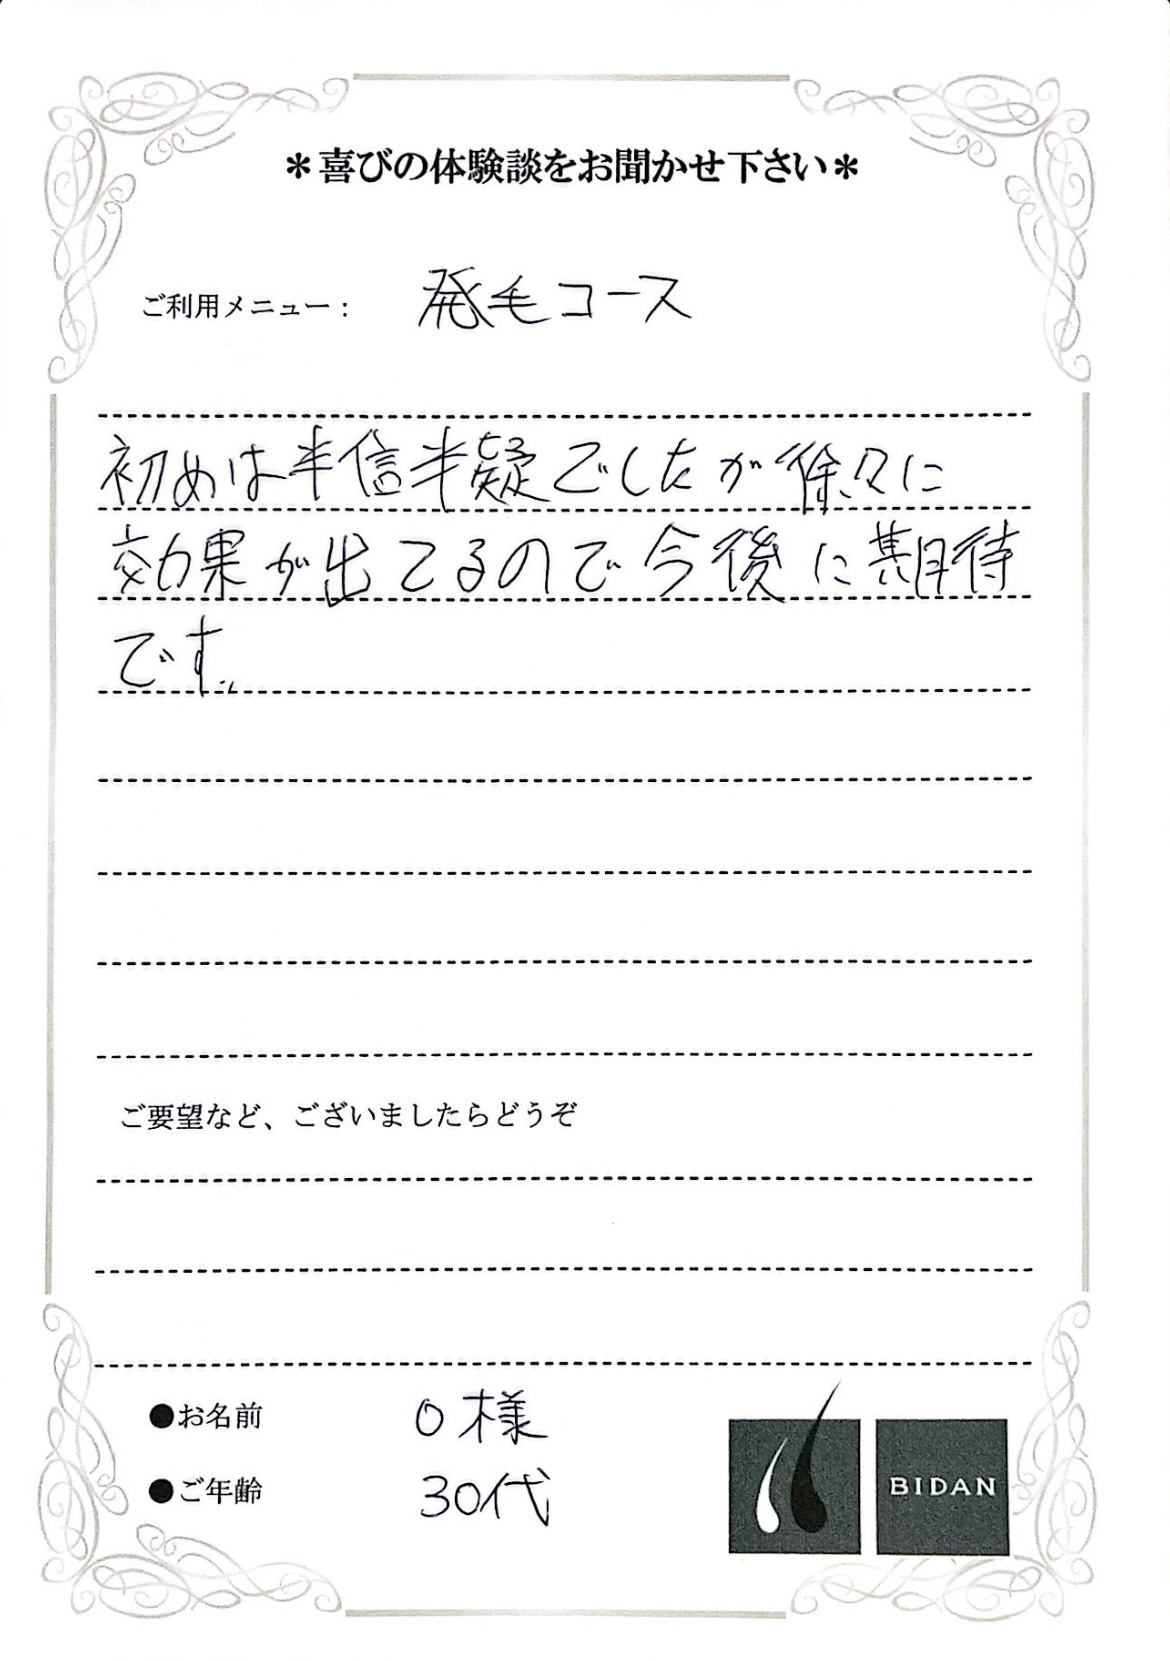 ＊喜びの体験談をお聞かせ下さい＊
ご利用メニュー： 発毛コース
初めは半信半疑でしたが徐々に
効果が出てるので今後に期待
です。
ご要望など、ございましたらどうぞ
●お名前 O様
●ご年齢 30代
BIDAN